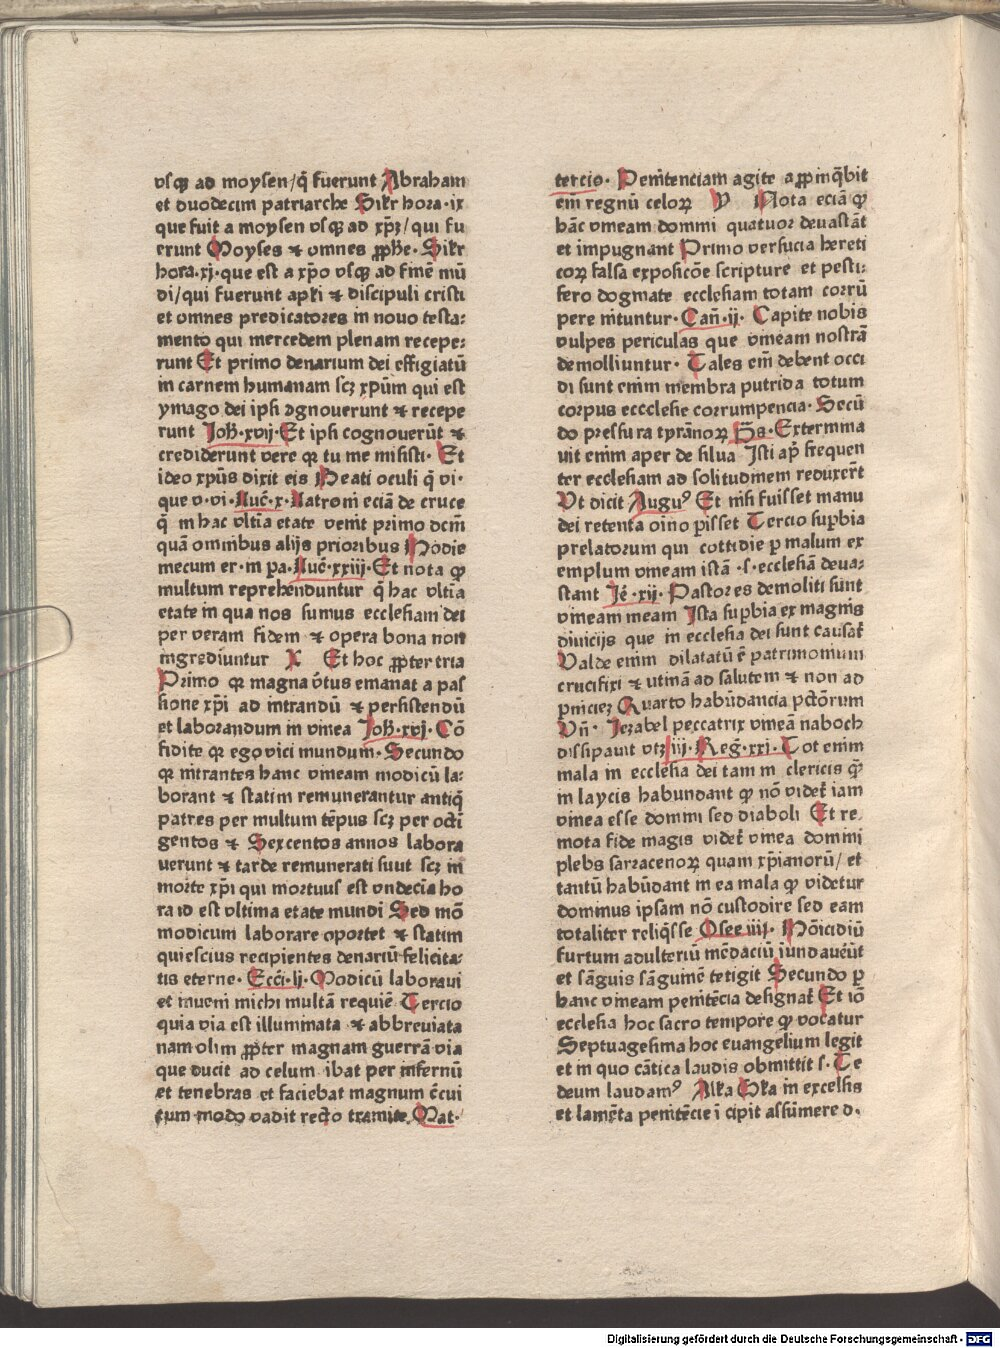 vsq̄ ad moysen/q̄ fuerunt Abraham
et duodecim patriarche Silr hora·ix
que fuit a moysen vsq̄ ad xp̄ꝫ/qui fu
erunt Moyses ⁊ omnes ꝓph̄e· Silr
hora·xj·que est a xp̄o vsq̄ ad finē mū
di/qui fuerunt apl̄i ⁊ discipuli cristi
et omnes predicatores in nouo testa:
mento qui mercedem plenam recepe:
runt Et primo denarium dei effigiatū
in carnem humanam scꝫ xp̄um qui est
ymago dei ipsi agnouerunt ⁊ recepe
runt Joh̄·xvij·Et ipsi cognouerūt ⁊
crediderunt vere qꝛ tu me misisti· Et
ideo xp̄us dixit eis Beati oculi q̄ vi·
que v·vi·Luc̄·x·Latroni eciā de cruce
q̄ in hac vltīa etate venit primo dcm̄
quā omnibus alijs prioribus Hodie
mecum er·in pa·Luc̄·xxiij·Et nota ꝙ
multum reprehenduntur q̄ hac vltīa
etate in qua nos sumus ecclesiam dei
per veram fidem ⁊ opera bona non
ingrediuntur X Et hoc ꝓpter tria
Primo qꝛ magna v̄tus emanat a pas
sione xp̄i ad intrandū ⁊ persistendū
et laborandum in vinea Joh̄·xvj·Cō
fidite qꝛ ego vici mundum· Secundo
qꝛ intrantes hanc vineam modicū la:
borant ⁊ statim remunerantur antiq̄
patres per multum tēpus scꝫ per octī
gentos ⁊ Sexcentos annos labora
uerunt ⁊ tarde remunerati suut scꝫ in
morte xp̄i qui mortuus est vndecīa ho
ra id est vltima etate mundi Sed mō
modicum laborare oportet ⁊ statim
quiescius recipientes denariū felicita:
tis eterne· Eccī·lj·Modicū laboraui
et inueni michi multā requiē Tercio
quia via est illuminata ⁊ abbreviata
nam olim ꝓpter magnam guerrā via
que ducit ad celum ibat per infernū
et tenebras et faciebat magnum c̄cui
tum modo vadit recto tramite Mat·
tercio· Penitenciam agite appinq̄bit
em̄ regnū celoꝝ Y Nota eciā ꝙ
hāc vineam domini quatuor deuastāt
et impugnant Primo versucia hereti
coꝝ falsa exposicōe scripture et pesti:
fero dogmate ecclesiam totam corrū
pere nituntur· Can̄·ij· Capite nobis
vulpes periculas que vineam nostrā
demolliuntur· Tales em̄ debent occi
di sunt enim membra putrida totum
corpus eccclesie corrumpencia· Secū
do pressura tyrānoꝝ P̄s·Extermina
uit enim aper de silua Isti ap̄ frequen
ter ecclesiam ad solitudinem reduxer̄t
Vt dicit Augu⁹ Et nisi fuisset manu
dei retenta oīno pisset Tercio supbia
prelatorum qui cottidie p malum ex
emplum vineam istā ·s·ecclesiā deua:
stant Je·xij· Pastores demoliti sunt
vineam meam Ista supbia ex magnis
diuicijs que in ecclesia dei sunt causat̄
Valde enim dilatatū ē patrimonium
crucifixi ⁊ vtinā ad salutem ⁊ non ad
pniciez Quarto habūdancia pctōrum
Vn̄· Jezabel peccatrix vineā naboth
dissipauit vtꝫ iij·Reg̅·xxi·Tot enim
mala in ecclesia dei tam in clericis q̄
in laycis habundant ꝙ nō videt̄ iam
vinea esse domini sed diaboli Et re
mota fide magis videt̄ vinea domini
plebs sarracenoꝝ quam xp̄ianorū/ et
tantū habūdant in ea mala ꝙ videtur
dominus ipsam nō custodire sed eam
totaliter reliq̄sse Osee iiij· Homicidiū
furtum adulteriū mēdaciū īundauēūt
et sāguis sāguinē tetigit Secundo p
hanc vineam penitēcia designat̄ Et iō
ecclesia hoc sacro tempore ꝙ vocatur
Septuagesima hoc euangelium legit
et in quo cātica laudis obmittit s·Te
deum laudam⁹ Alla Gla in excelsis
et lamēta penitēcie īcipit assumere d·
Digitalisierung gefördert durch die Deutsche Forschungsgemeinschaft - DFG